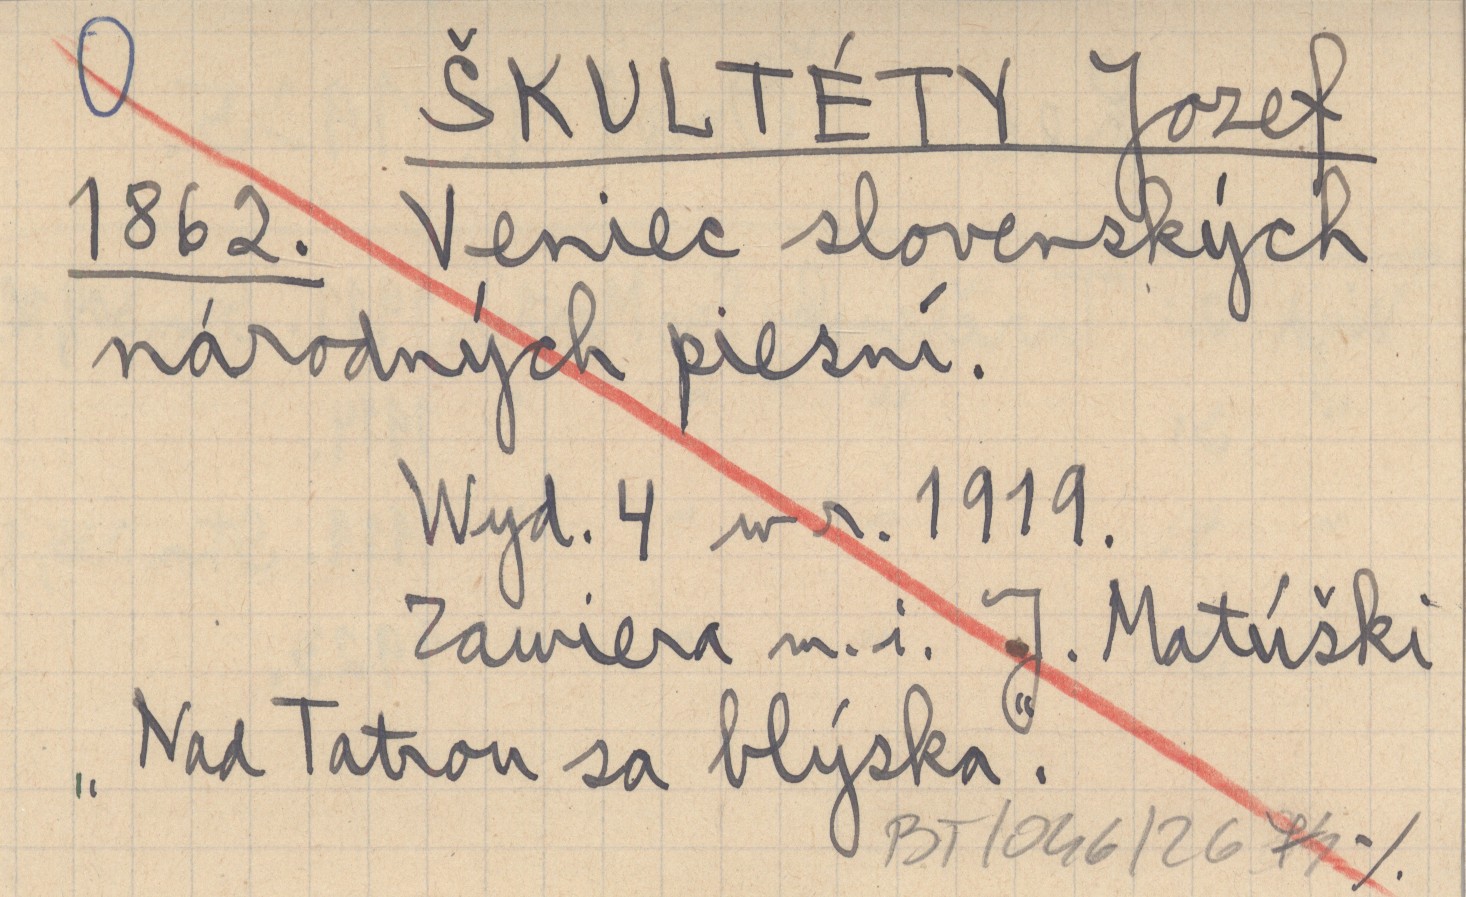 ŠKULTÉTY Jozef
1862. Veniec slovenských
národných piesní.
Wyd. 4 w r. 1919.
Zawiera m.i. J. Matúški
„Nad Tatrou sa blýska“.
BT/046/26